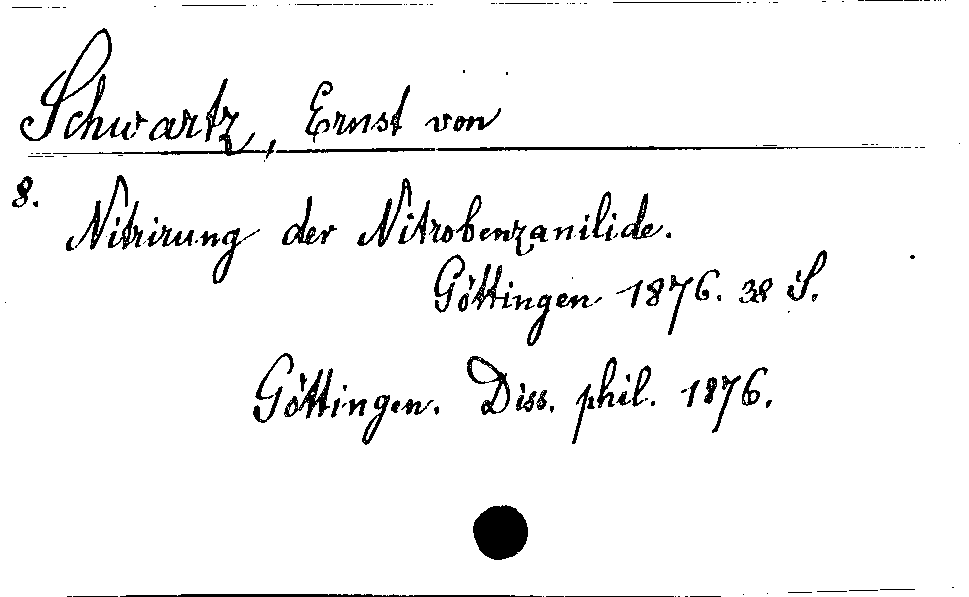 Schwartz, Ernst von
8.
Nitrirung der Nitrobenzanilide.
Göttingen 1876. 38 S.
Göttingen. Diss. phil. 1876.